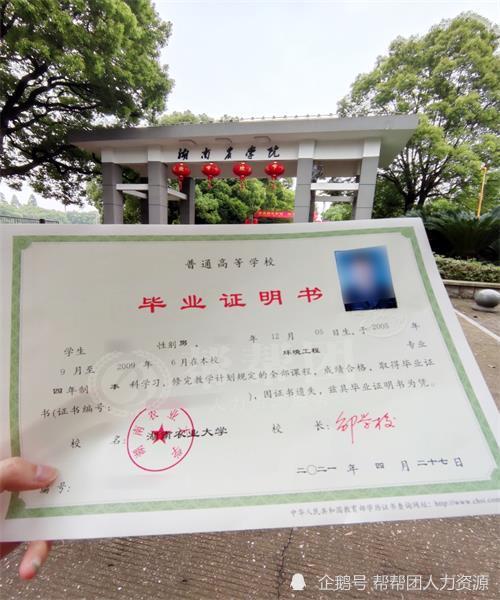 湖南农学院
普通高等学校
毕业证明书
学生 性别男， 年 12 月 05 日生，于 2005 年
9 月至 2009 年 6 月在本校 环境工程 专业
四年制 本 科学习，修完教学计划规定的全部课程，成绩合格，取得毕业证
书(证书编号： )，因证书遗失，兹具毕业证明书为凭。
校 名：湖南农业大学 校 长：
二〇二一 年 四 月 二十七 日
编号：
中华人民共和国教育部学历证书查询网址：http://www.chsi.com
企鹅号 帮帮团人力资源